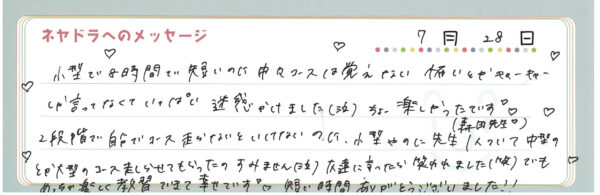 ネヤドラへのメッセージ
7月 28日
小型で8時間で短いのに 中々コースは覚えれない 怖いとかキャーキャー
しか言ってなくて いっぱい 迷惑かけました(泣) ちょー楽しかったです
(森田先生)
2段階で自分でコース走らないといけないのに、小型やのに先生1人ついて中型の
とか大型のコース走しらせてもらったの すみません(泣) 友達に言ったら笑われました(笑) でも
めっちゃ楽しく教習できて幸せです 短い時間ありがとうございました!!